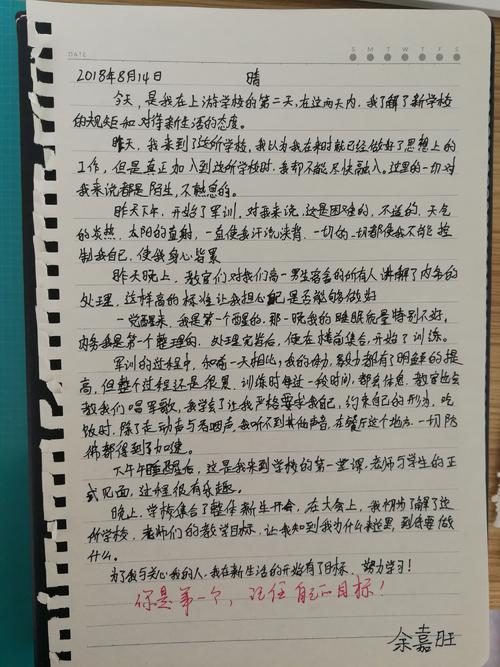 DATE:
S M T W T F S
2018年8月14日 晴
今天,是我在上海学校的第二天,在这两天内,我了解了新学校
的规矩和对待新生活的态度。
昨天,我来到了这所学校,我以为我在来时就已经做好了思想上的
工作,但是真正加入到这所学校时,我却不能尽快融入。这里的一切对
我来说都是陌生,不熟悉的。
昨天下午,开始了军训,对我来说,这是困难的,不适的,天气
的炎热,太阳的直射,一直使我汗流浃背,一切的一切都使我不能控
制我自己,使我身心皆累
昨天晚上,教官们对我们高一男生宿舍的所有人讲解了内务的
处理,这样高的标准让我担心自己是否能够做好
一觉醒来,我是第一个醒的,那一晚我的睡眠质量特别不好,
内务我是第一个整理的,处理完后,便在楼前集合,开始了训练。
军训的过程中,和前一天相比,我的体力,毅力都有了明显的提
高,但整个过程还是很累,训练时每过一段时间,都会休息,教官也会
教我们唱军歌,我学会了让我严格要求我自己,约束自己的行为,吃
饭时,除了走动声与咀嚼声,我听不到其他声音,在餐厅这个地方,一切仿
佛都得到了加速。
下午午睡醒后,这是我来到学校的第一堂课,老师与学生的正
式见面,过程很有乐趣。
晚上,学校集合了整体新生开会,在大会上,我初步了解了这
所学校,老师们的教学目标,让我知到我为什么来这里,到底要做
什么。
为了我与关心我的人,我在新生活的开始有了目标,努力学习!
你是第一个,记住自己的目标!
余嘉旺